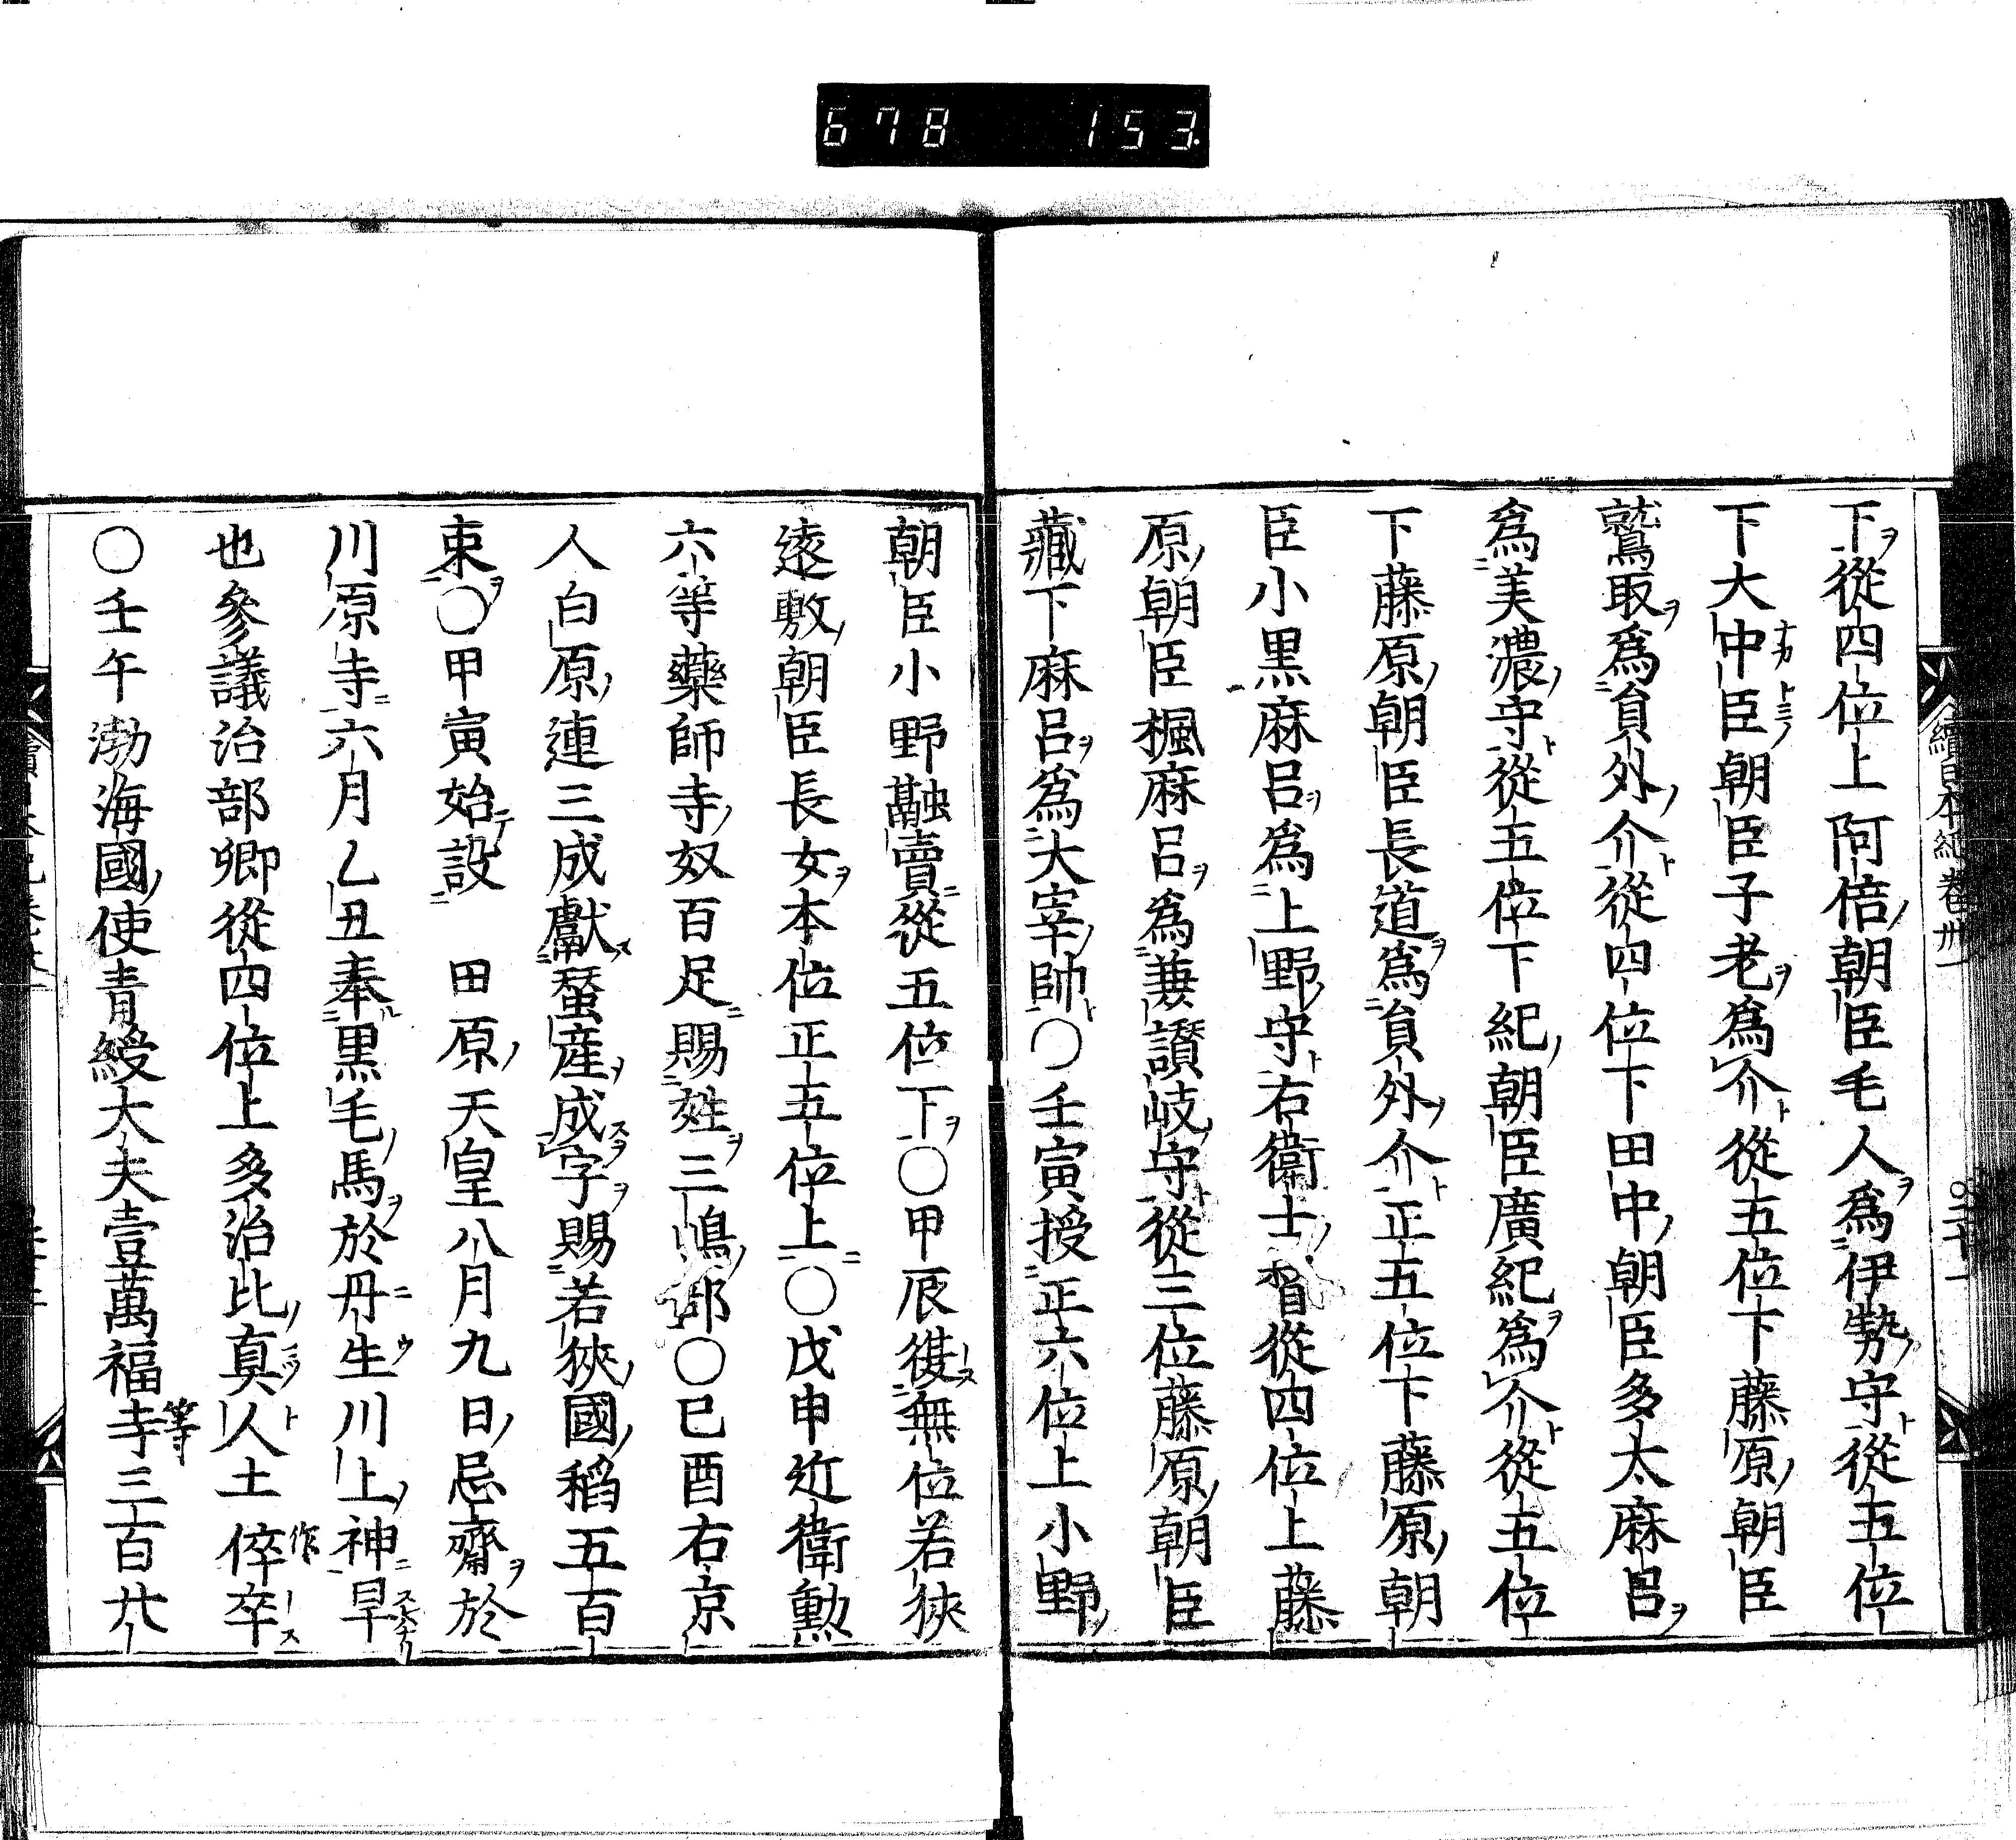 678 153
下從四位上阿倍朝臣毛人爲伊勢守從五位
下大中臣朝臣子老爲介從五位下藤原朝臣
鷲取爲員外介從四位下田中朝臣多太麻呂
爲美濃守從五位下紀朝臣廣紀爲介從五位
下藤原朝臣長道爲員外介正五位下藤原朝
臣小黒麻呂爲上野守右衞士督從四位上藤
原朝臣楓麻呂爲兼讃岐守從三位藤原朝臣
藏下麻呂爲大宰帥○壬寅授正六位上小野
朝臣小野虣賣從五位下○甲辰復無位若狹
遠敷朝臣長女本位正五位上○戊申近衛勲
六等藥師寺奴百足賜姓三嶋部○已酉右京
人白原連三成獻蚕産成字賜若狹國稻五百
束○甲寅始設 田原天皇八月九日忌齋於
川原寺六月乙丑奉黒毛馬於丹生川上神旱
也參議治部卿從四位上多治比真人土作倅卒
○壬午渤海國使青綬大夫壹萬福寺等三百廿
續日本紀卷卅一